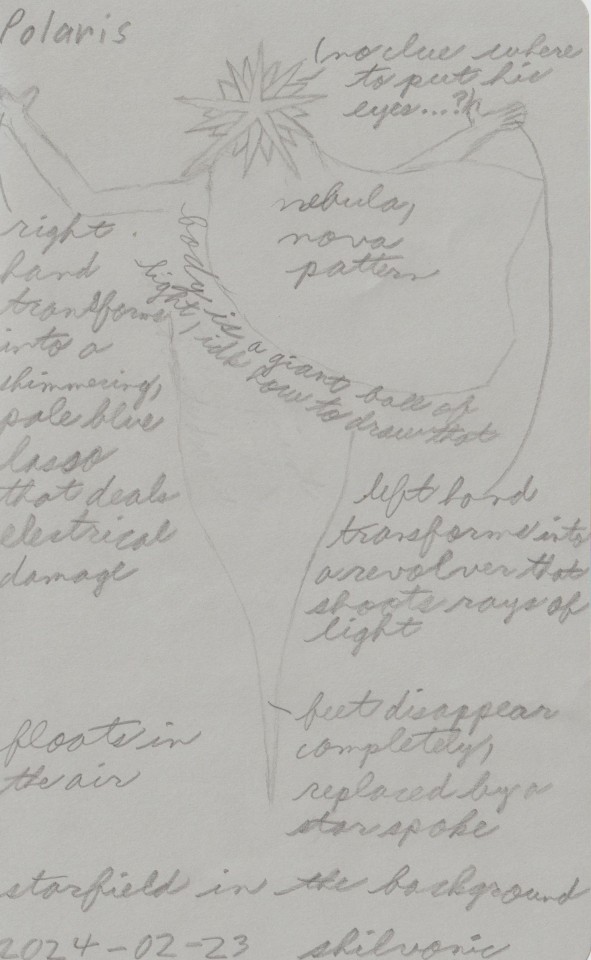 Polaris
(no clue where
to put his
eyes...?)
nebula,
nova
pattern
body is a giant ball of
light, idk how to draw that
right
hand
transforms
into a
shimmering,
pale blue
lasso
that deals
electrical
damage
left hand
transforms into
a revolver that
shoots rays of
light
feet disappear
completely,
replaced by a
star spoke
floats in
the air
starfield in the background
2024-02-23 shilvonic